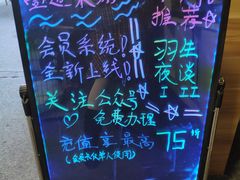 推荐
会员系统!
全新上线!
羽生
夜谈
I II
关注公众号
免费办理
充值享最高75折
(会员卡仅本人使用)